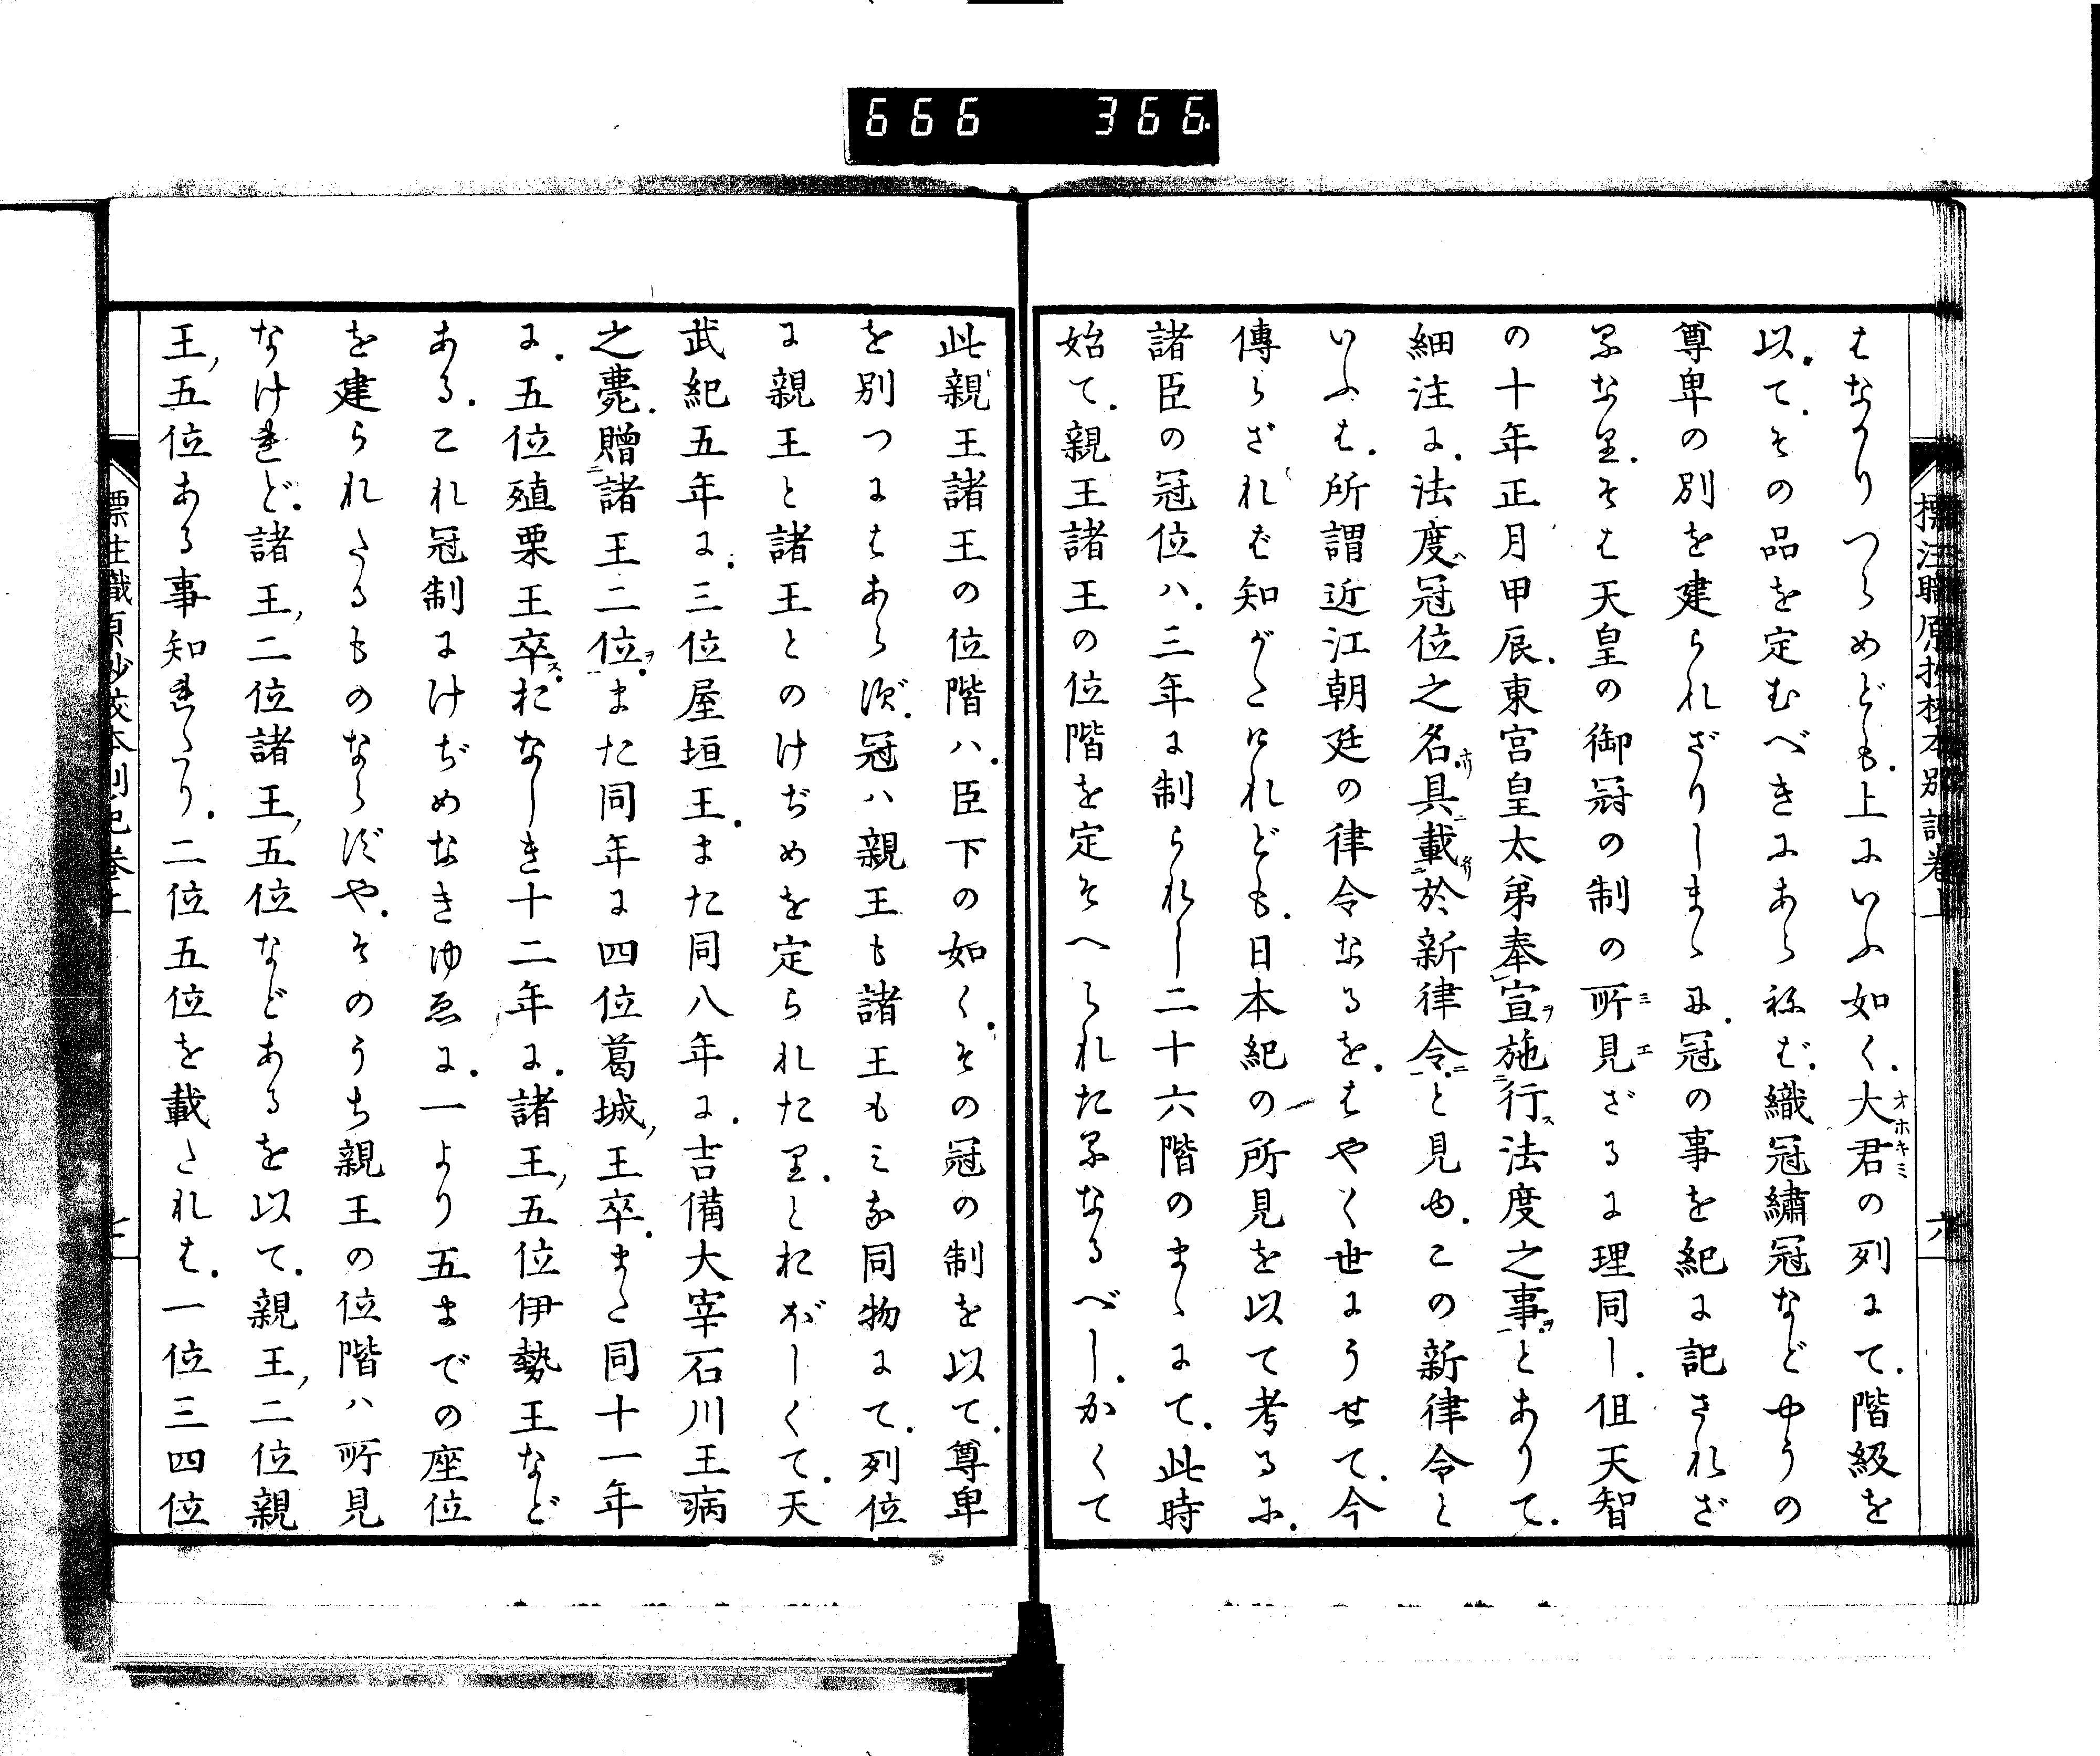 666 366.
標注職原抄校本別記卷上 六
はなりつらめども。上にいふ如く。大君の列にて。階級を
オホキミ
以て。その品を定むべきにあらねば。織冠繡冠などやうの
尊卑の別を建られざりしまゝに。冠の事を紀に記されざ
るなり。そは天皇の御冠の制の所見ざるに理同し。但天智
ミエ
の十年正月甲辰。東宮皇太弟奉宣施行法度之事とありて。
細注に。法度冠位之名具載於新律令と見ゆ。この新律令と
いふは。所謂近江朝廷の律令なるを。はやく世にうせて。今
傳らざれば知がたけれども。日本紀の所見を以て考るに。
諸臣の冠位ハ。三年に制られし二十六階のまゝにて。此時
始て。親王諸王の位階を定そへられたるなるべし。かくて
此親王諸王の位階ハ。臣下の如く。その冠の制を以て。尊卑
を別つにはあらず。冠ハ親王も諸王もみな同物にて。列位
に親王と諸王とのけぢめを定られたり。とおぼしくて。天
武紀五年に。三位屋垣王。また同八年に。吉備大宰石川王病
之薨。贈諸王二位。また同年に四位葛城王卒。また同十一年
に。五位殖栗王卒。おなしき十二年に。諸王五位伊勢王など
ある。これ冠制にけぢめなきゆゑに。一より五までの座位
を建られたるものならずや。そのうち親王の位階ハ所見
なけれど。諸王二位諸王五位などあるを以て。親王二位親
王五位ある事知れたり。二位五位を載たれは。一位三四位
標注職原抄校本別記卷上 七